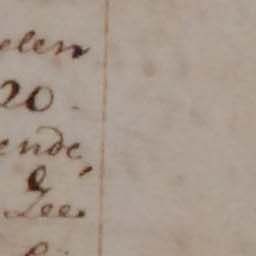 elen
20
ende,
e
Lee.